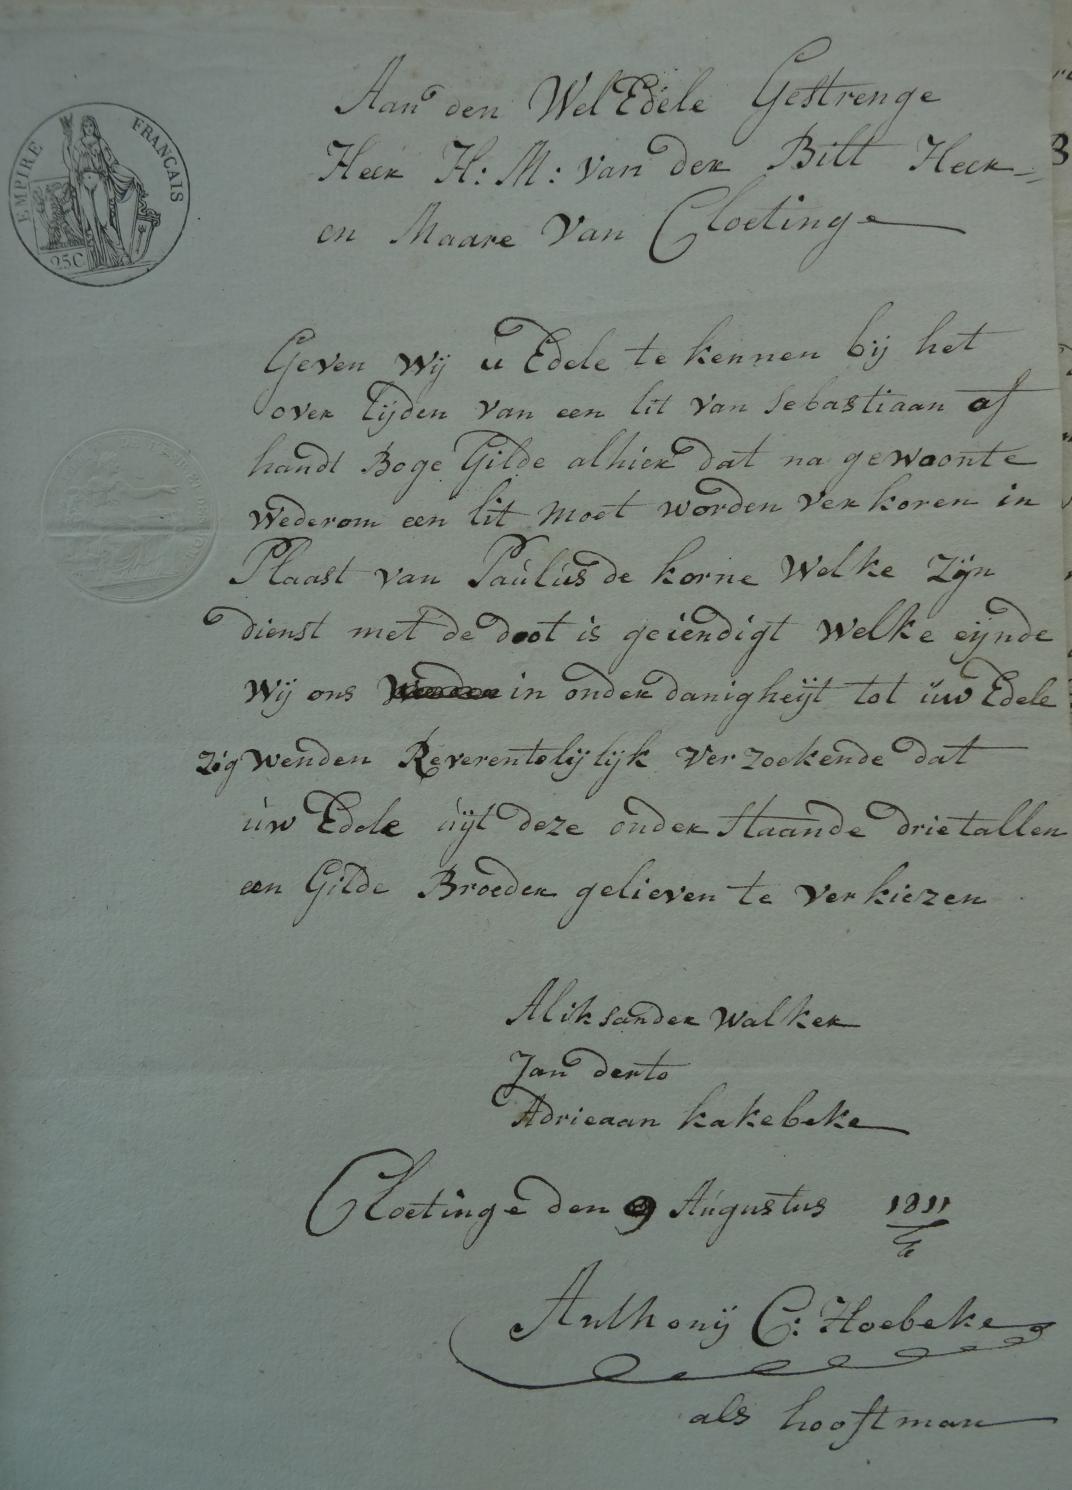 Aan den Wel Edele Gestrenge
Heer H: M: van der Bilt Heer
en Maare van Cloetinge
EMPIRE FRANÇAIS
25C
Geven wij u Edele te kennen bij het
over lijden van een lit van Sebastiaan of
handt Boge Gilde alhier dat na gewoonte
wederom een lit moet worden verkoren in
Plaast van Paulus de korne welke zijn
dienst met de doot is geiendigt welke eijnde
wij ons in onderdanigheijt tot uw Edele
zig wenden Reverentelijlijk verzoekende dat
uw Edele uijt deze onder staande drietallen
een Gilde Broeder gelieven te verkiezen
Aliksander Walker
Jan derto
Adrieaan kakebeke
Cloetinge den 9 Augustus 1811
Anthonij C: Hoebeke
als hooftman